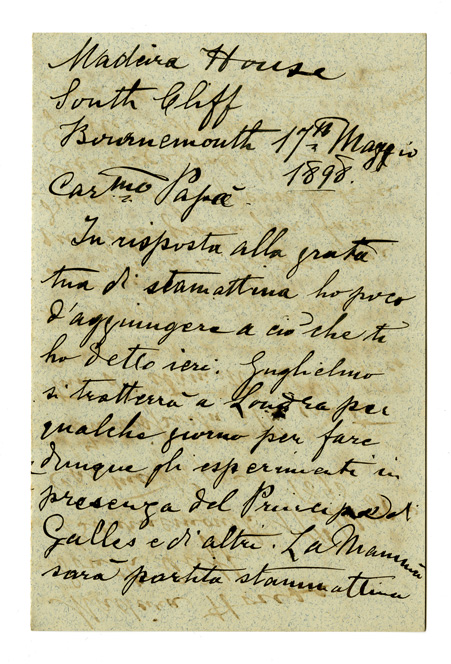 Madeira House
South Cliff
Bournemouth 17th Maggio
1898.
Carmo Papà.
In risposta alla grata
tua di stamattina ho poco
d'aggiungere a ciò che ti
ho detto ieri. Guglielmo
si tratterrà a Londra per
qualche giorno per fare
dunque gli esperimenti in
presenza del Principe di
Galles e di altri. La Mamma
sarà partita stammattina